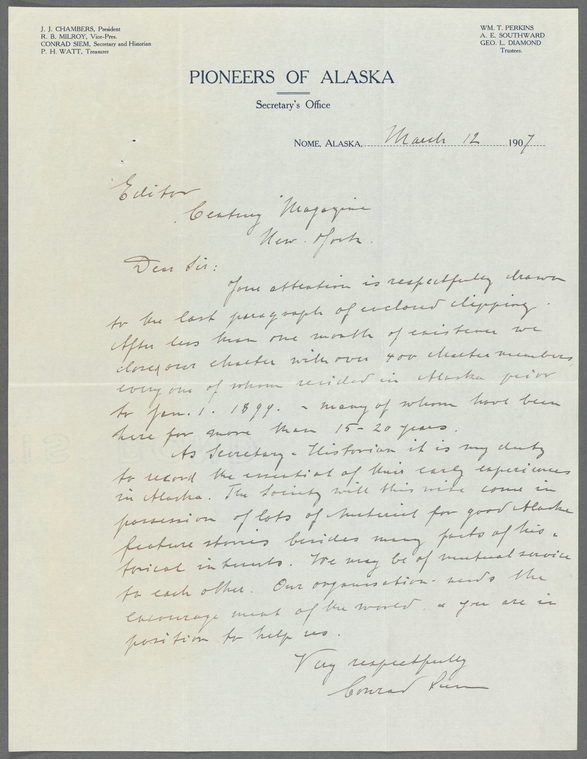 J. J. CHAMBERS, President
R. B. MILROY, Vice-Pres.
CONRAD SIEM, Secretary and Historian
P. H. WATT, Treasurer
WM. T. PERKINS
A. E. SOUTHWARD
GEO. L. DIAMOND
Trustees.
PIONEERS OF ALASKA
Secretary's Office
NOME, ALASKA, March 12 1907
Editor
Century Magazine
New York.
Dear Sir:
Your attention is respectfully drawn
to the last paragraph of enclosed clipping.
After less than one month of existence we
closed our charter with over 400 charter members
every one of whom resided in Alaska prior
to Jan. 1. 1899. - many of whom have been
here for more than 15-20 years.
As Secretary-Historian it is my duty
to record the essential of their early experiences
in Alaska. The Society will this wise come in
possession of lots of material for good Alaska
feature stories besides many parts of his-
torical interests. We may be of mutual service
to each other. Our organisation needs the
encouragement of the world & you are in
position to help us.
Very respectfully
Conrad Siem